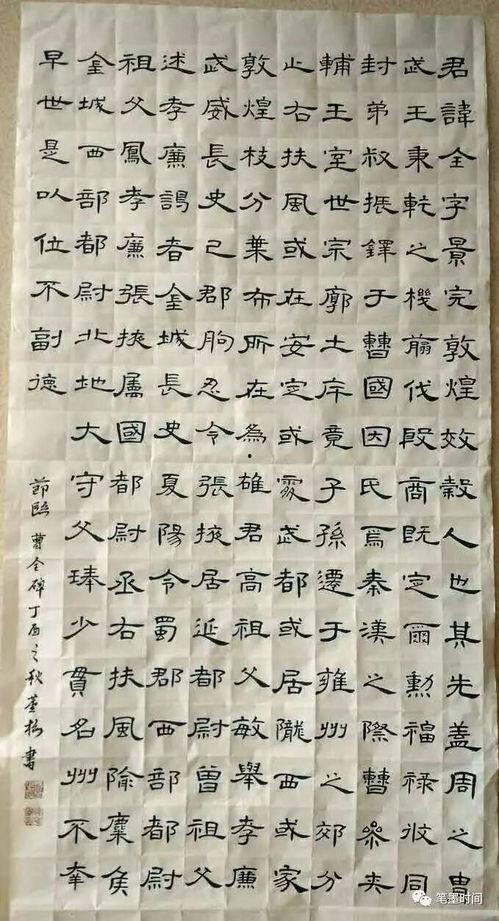 君諱全字景完敦煌效穀人也其先蓋周之胄
武王秉乾之機翦伐殷商既定爾勳福祿攸同
封弟叔振鐸于曹國因氏焉秦漢之際曹參夾
輔王室世宗廓土斥竟子孫遷于雍州之郊分
止右扶風或在安定或處武都或居隴西或家
敦煌枝分葉布所在為雄君高祖父敏舉孝廉
武威長史巴郡朐忍令張掖居延都尉曾祖父
述孝廉謁者金城長史夏陽令蜀郡西部都尉
祖父鳳孝廉張掖屬國都尉丞右扶風隃麋侯
金城西部都尉北地大守父琫少貫名州不幸
早世是以位不副德
節臨曹全碑丁酉之秋董書
笔墨时间